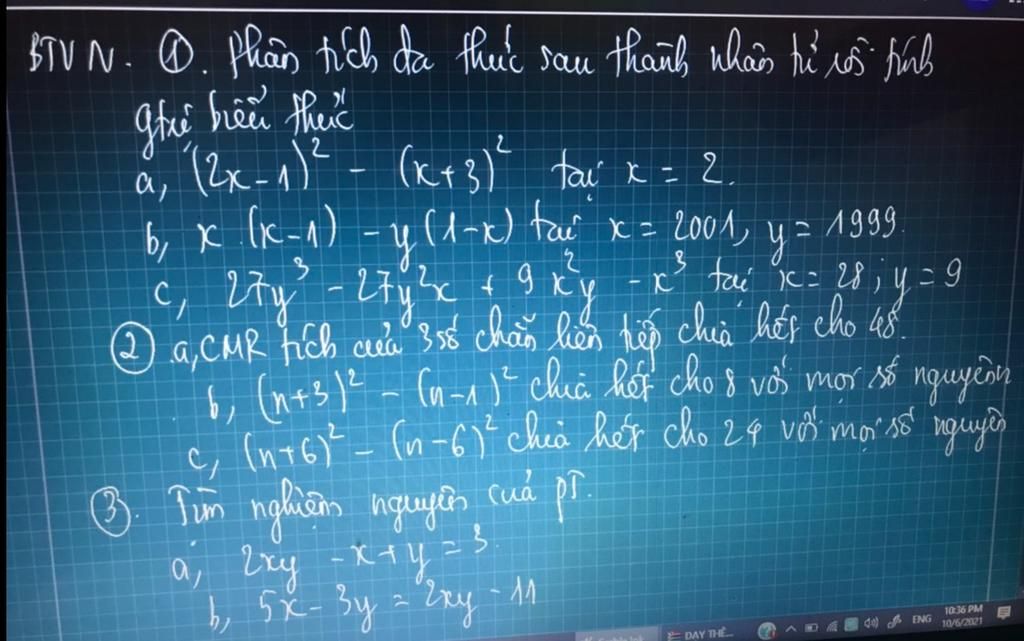 BTVN. ①. Phân tích đa thức sau thành nhân tử rồi tính
gtrị biểu thức
a, (2x-1)² - (x+3)² tại x = 2.
b, x.(x-1) - y(1-x) tại x = 2001, y = 1999.
c, 27y³ - 27y²x + 9x²y - x³ tại x = 28; y = 9
② a, CMR tích của 3 số chẵn liên tiếp chia hết cho 48.
b, (n+3)² - (n-1)² chia hết cho 8 với mọi số nguyên n
c, (n+6)² - (n-6)² chia hết cho 24 với mọi số nguyên
③. Tìm nghiệm nguyên của pT.
a, 2xy - x + y = 3.
b, 5x - 3y = 2xy - 11
DAY THÊ... ENG 10:36 PM
10/6/2021